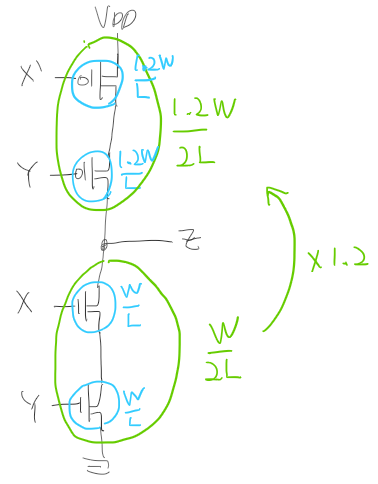 VDD
X'
1.2W
L
1.2W
2L
Y
1.2W
L
Z
X 1.2
X
W
L
W
2L
Y
W
L